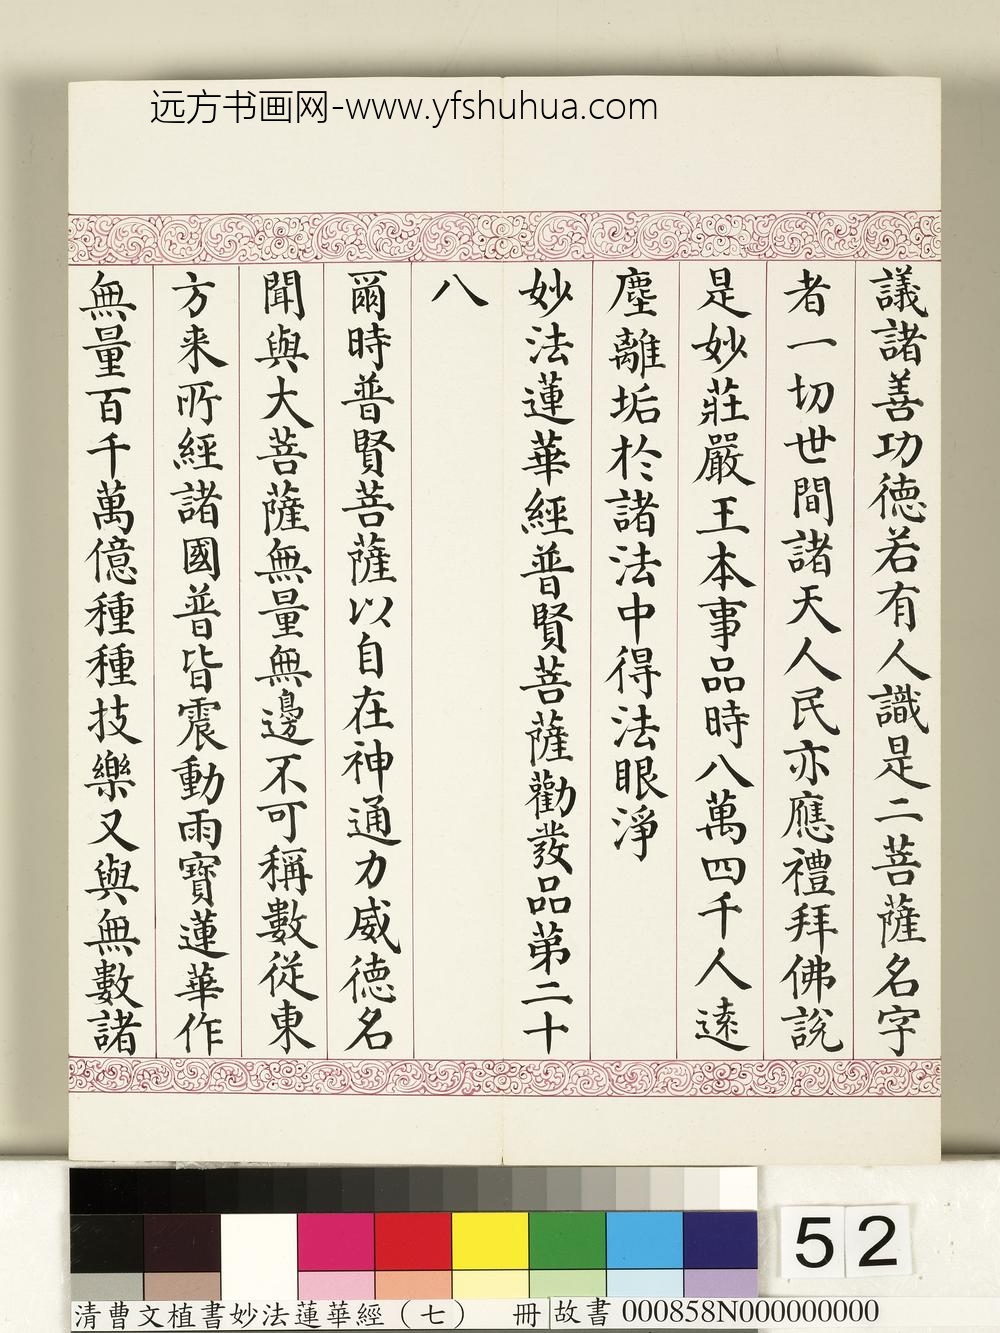 远方书画网-www.yfshuhua.com
議諸善功德若有人識是二菩薩名字
者一切世間諸天人民亦應禮拜佛說
是妙莊嚴王本事品時八萬四千人遠
塵離垢於諸法中得法眼淨
妙法蓮華經普賢菩薩勸發品第二十
八
爾時普賢菩薩以自在神通力威德名
聞與大菩薩無量無邊不可稱數從東
方来所經諸國普皆震動雨寶蓮華作
無量百千萬億種種技樂又與無數諸
52
清曹文植書妙法蓮華經（七） 冊 故書 000858N000000000